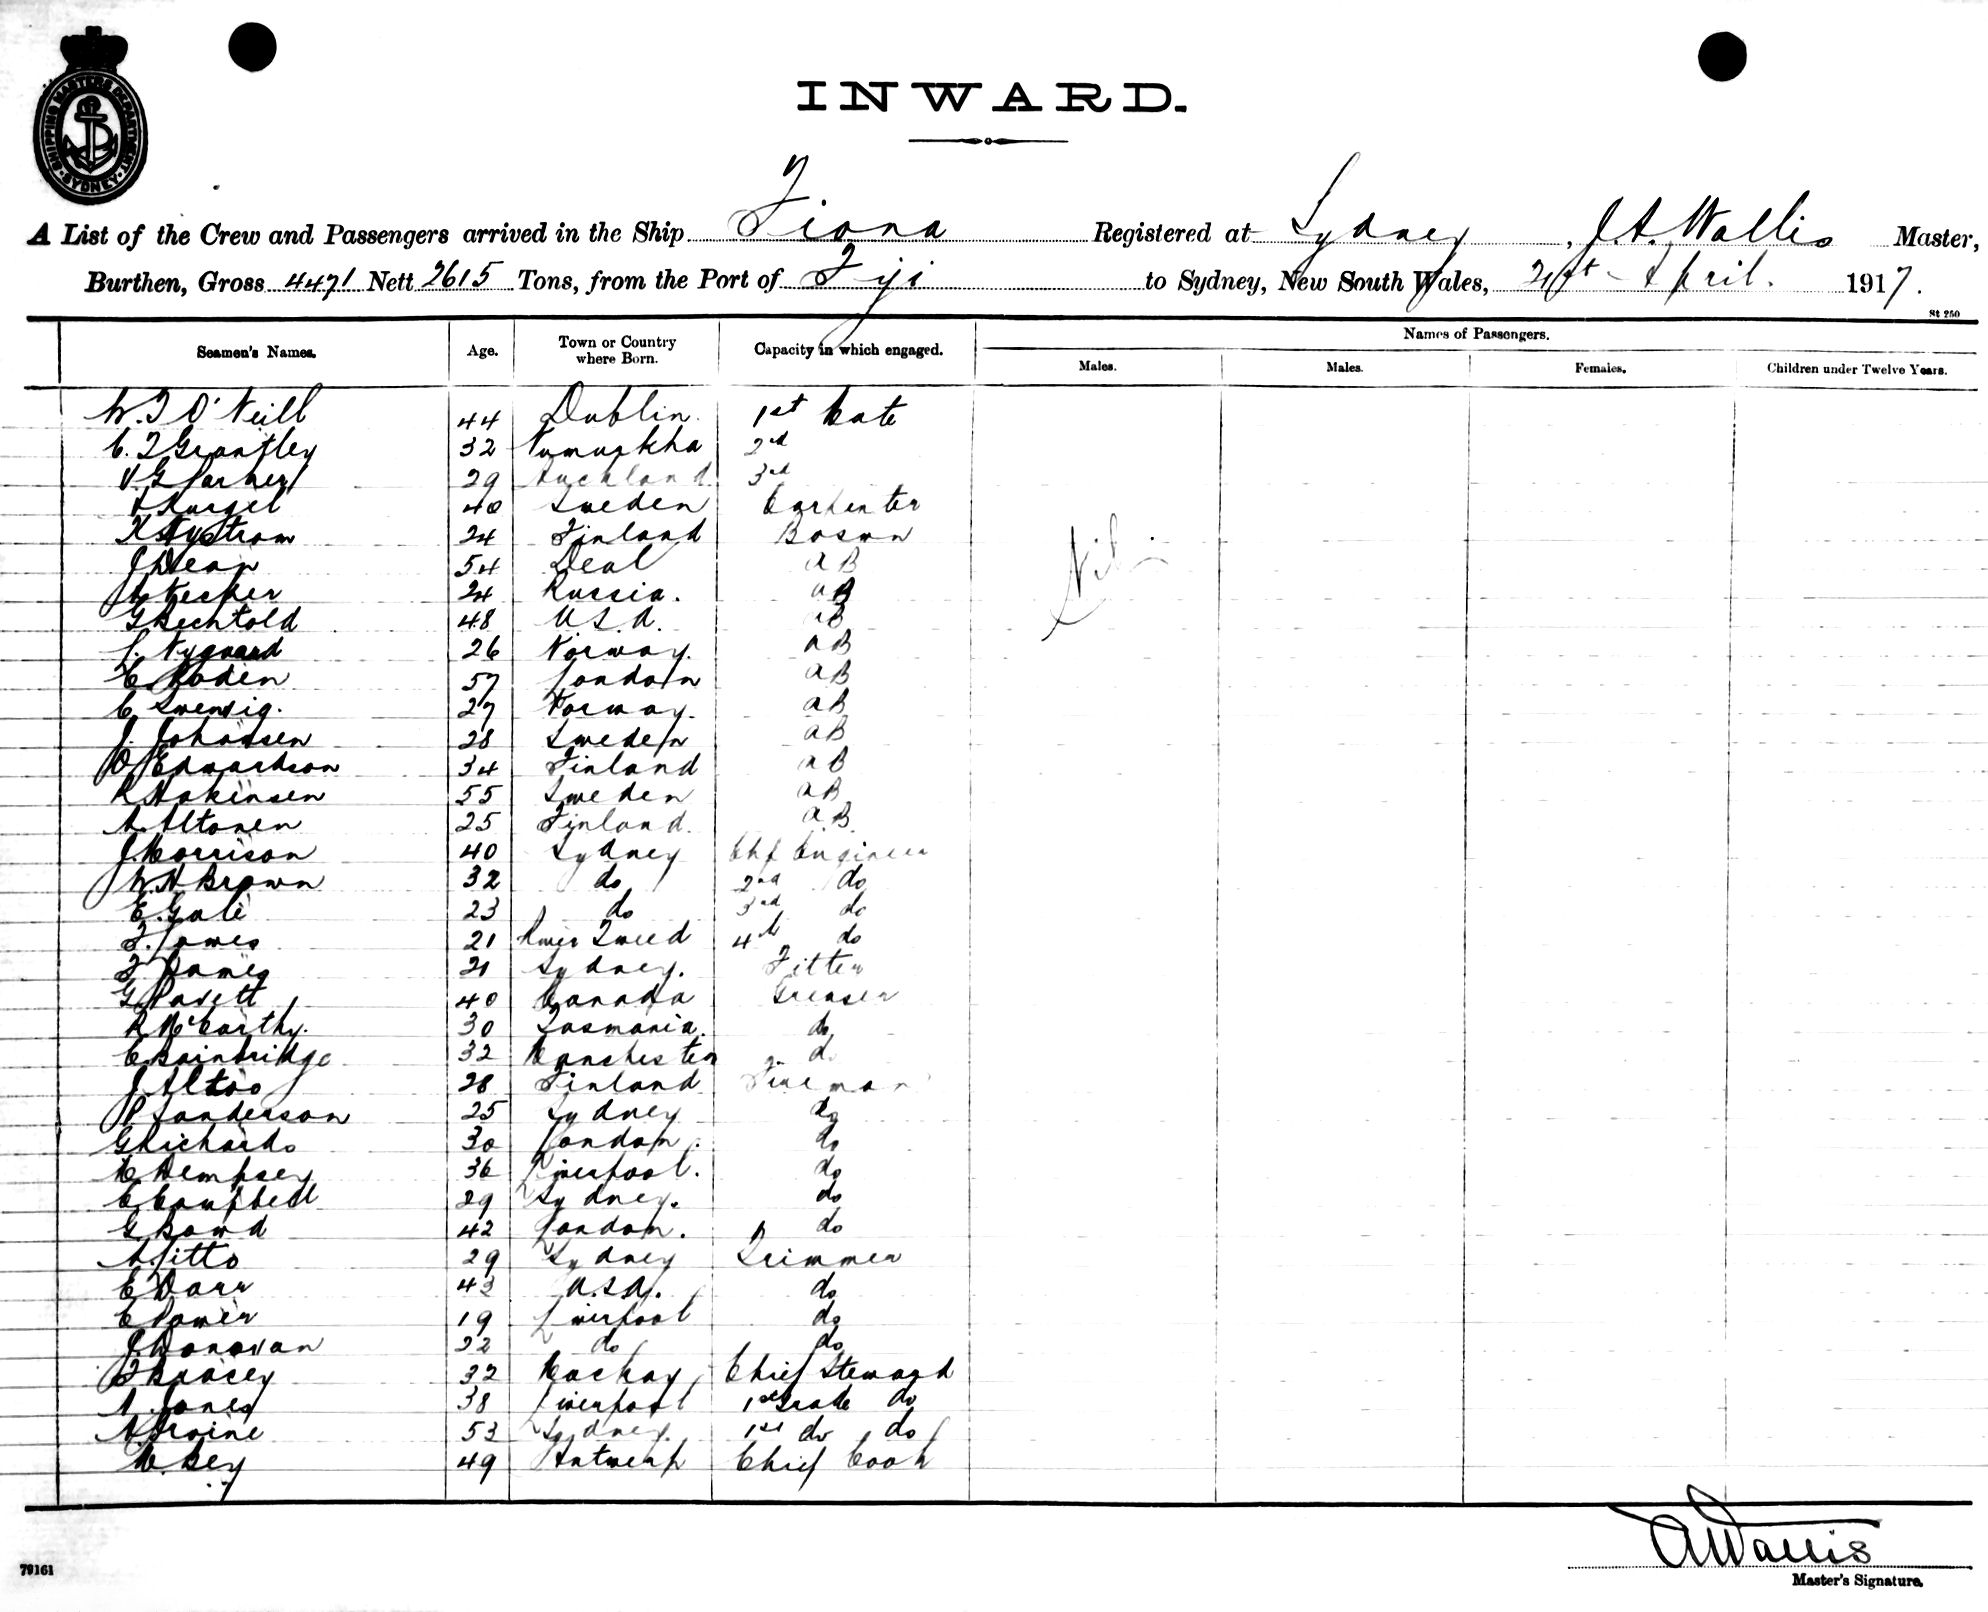 SHIPPING MASTERS DEPARTMENT
SYDNEY
INWARD.
A List of the Crew and Passengers arrived in the Ship Fiona Registered at Sydney, J. A. Wallis Master,
Burthen, Gross 4471 Nett 2615 Tons, from the Port of Fiji to Sydney, New South Wales, 21st April. 1917.
St 250
Seamen's Names. Age. Town or Country where Born. Capacity in which engaged. Names of Passengers.
Males. Males. Females. Children under Twelve Years.
W. J O'Neill 44 Dublin. 1st Mate
C. J Grantley 32 2nd
V. G. 29 Auckland 3rd
40 Sweden Carpenter
K Nystrom 24 Finland Bosun
Nil
J Dean 54 Deal AB
24 Russia. AB
G Bechtold 48 U.S.A. AB
Nygaard 26 Norway. AB
57 London AB
C 27 Norway. AB
J. Johansen 28 Sweden AB
O Edwardson 34 Finland AB
R Hakensen 55 Sweden AB
A. Altonen 25 Finland. AB
J. Morrison 40 Sydney Chf Engineer
W H Brown 32 do 2nd do
E. Gale 23 do 3rd do
21 River Tweed 4th do
21 Sydney. Fitter
G Pavett 40 Canada Greaser
R McCarthy. 30 Tasmania. do
C Bainbridge 32 Manchester do
J Altoo 28 Finland Fireman
P Sanderson 25 Sydney do
G Richards 30 London. do
M Dempsey 36 Liverpool. do
C Campbell 29 Sydney. do
G. Bowd 42 London. do
A. 29 Sydney Trimmer
E Darr 43 U.S.A. do
C Power 19 Liverpool do
J. Donovan 22 do do
32 Mackay Chief Steward
A. Jones 38 Liverpool 1st Grade do
A Irvine 53 Sydney. 1st do do
M. Bey 49 Antwerp Chief Cook
A Wallis
Master's Signature.
79161